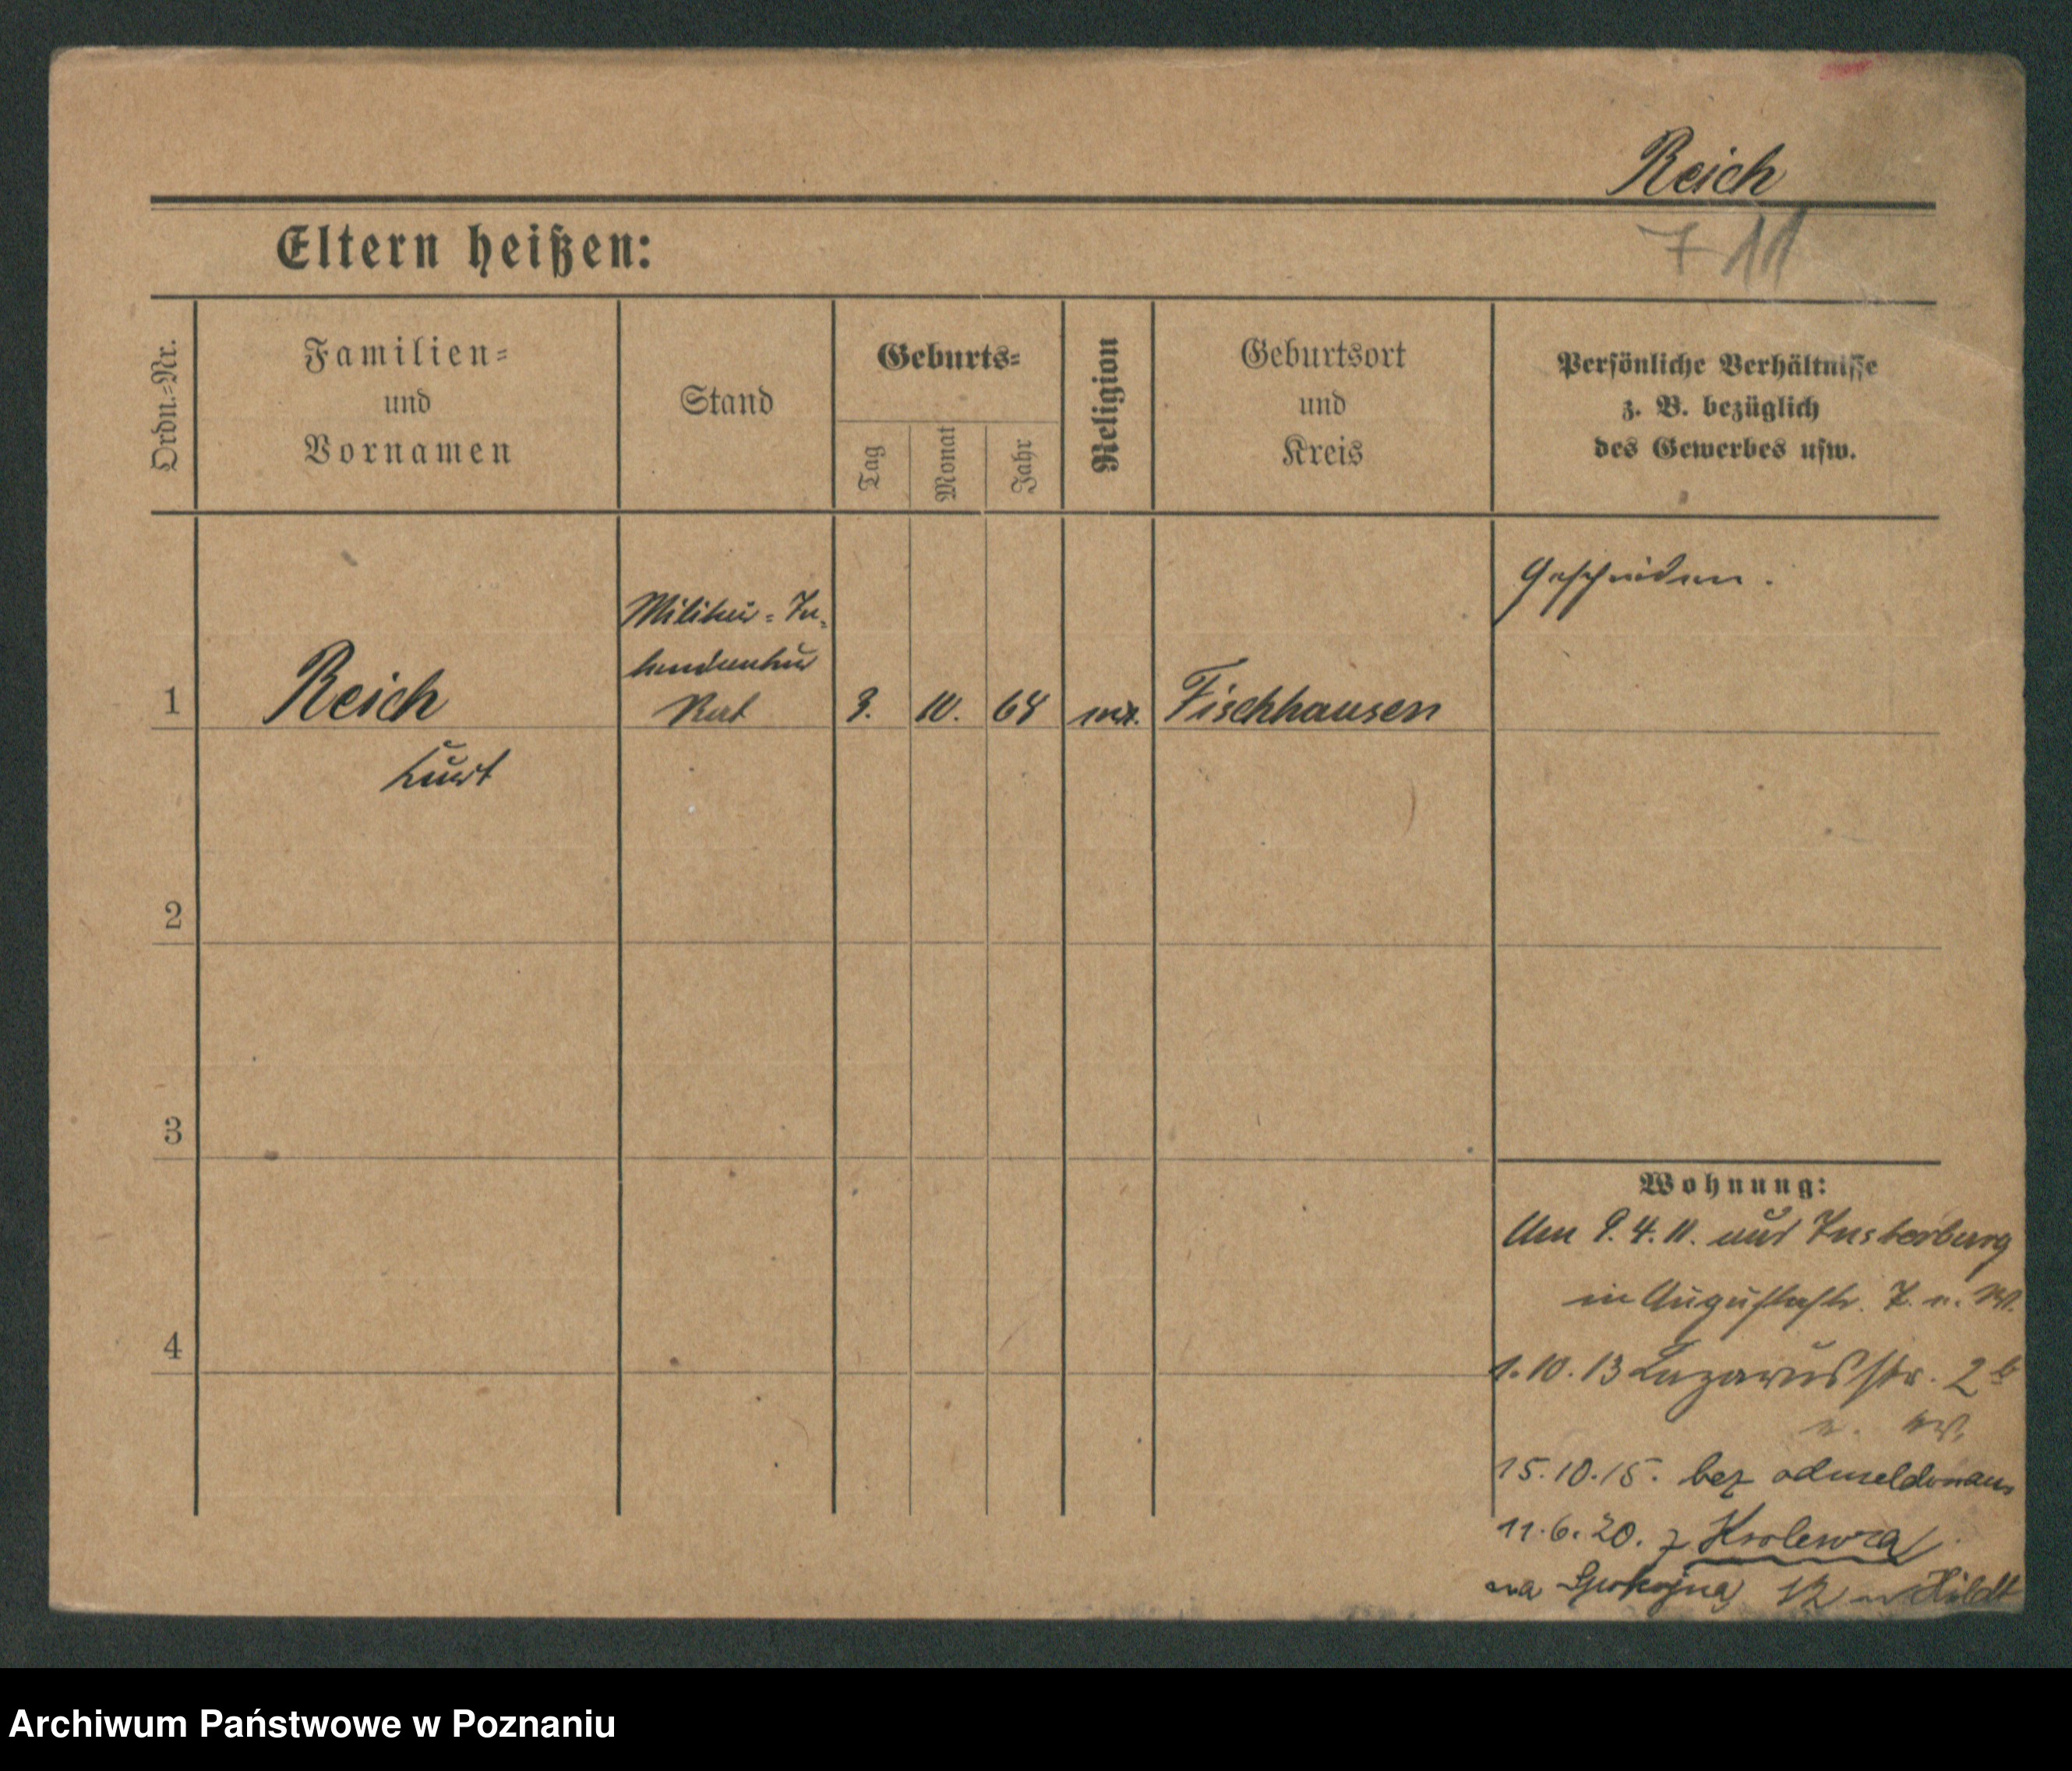 Reich
711
Eltern heißen:
Ordn.=Nr.
Familien=
und
Vornamen
Stand
Geburts=
Tag
Monat
Jahr
Religion
Geburtsort
und
Kreis
Persönliche Verhältnisse
z. B. bezüglich
des Gewerbes usw.
Geschieden.
Militär=In=
tendantur
1 Reich Rat 3. 10. 64 Fischhausen
Kurt
2
3
4
Wohnung:
Um 9.4.11. aus Insterburg
in Augustastr. 7. n. W.
1.10.13 Lazarusstr. 2b
n. W.
15.10.15. bez odmeldowan
11.6.20. z Krolewca
na Spokojna 12
Archiwum Państwowe w Poznaniu